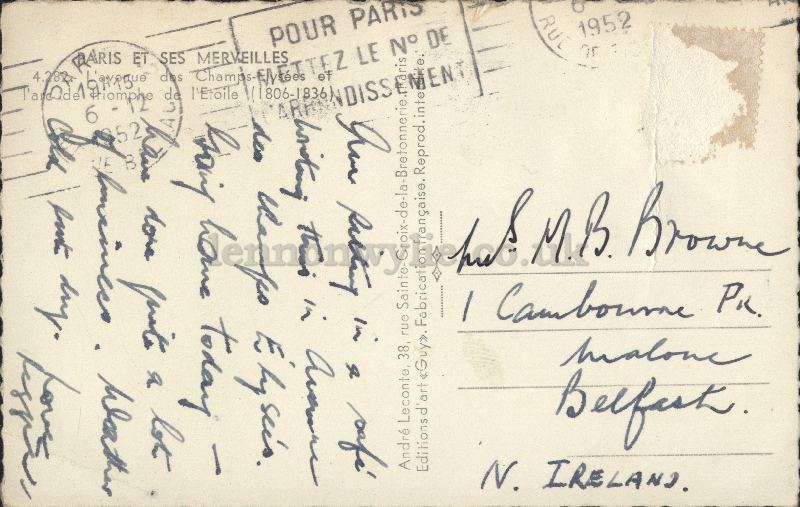 PARIS ET SES MERVEILLES
4.282. L'avenue des Champs-Elysées et
l'arc de Triomphe de l'Etoile (1806-1836)
POUR PARIS
METTEZ LE Nº DE
L'ARRONDISSEMENT
19H15
6 - 12
1952
6
1952
RUE
Am sitting in a café
writing this in Avenue
des Champs Élysées.
Going home today –
have done quite a lot
of business. Weather
cold but dry.
Love
André Leconte, 38, rue Sainte-Croix-de-la-Bretonnerie, Paris
Editions d'art «Guy». Fabrication française. Reprod. interdite.
Mrs M. B. Browne
1 Cambourne Pk.
Malone
Belfast.
N. IRELAND.
lennonwylie.co.uk